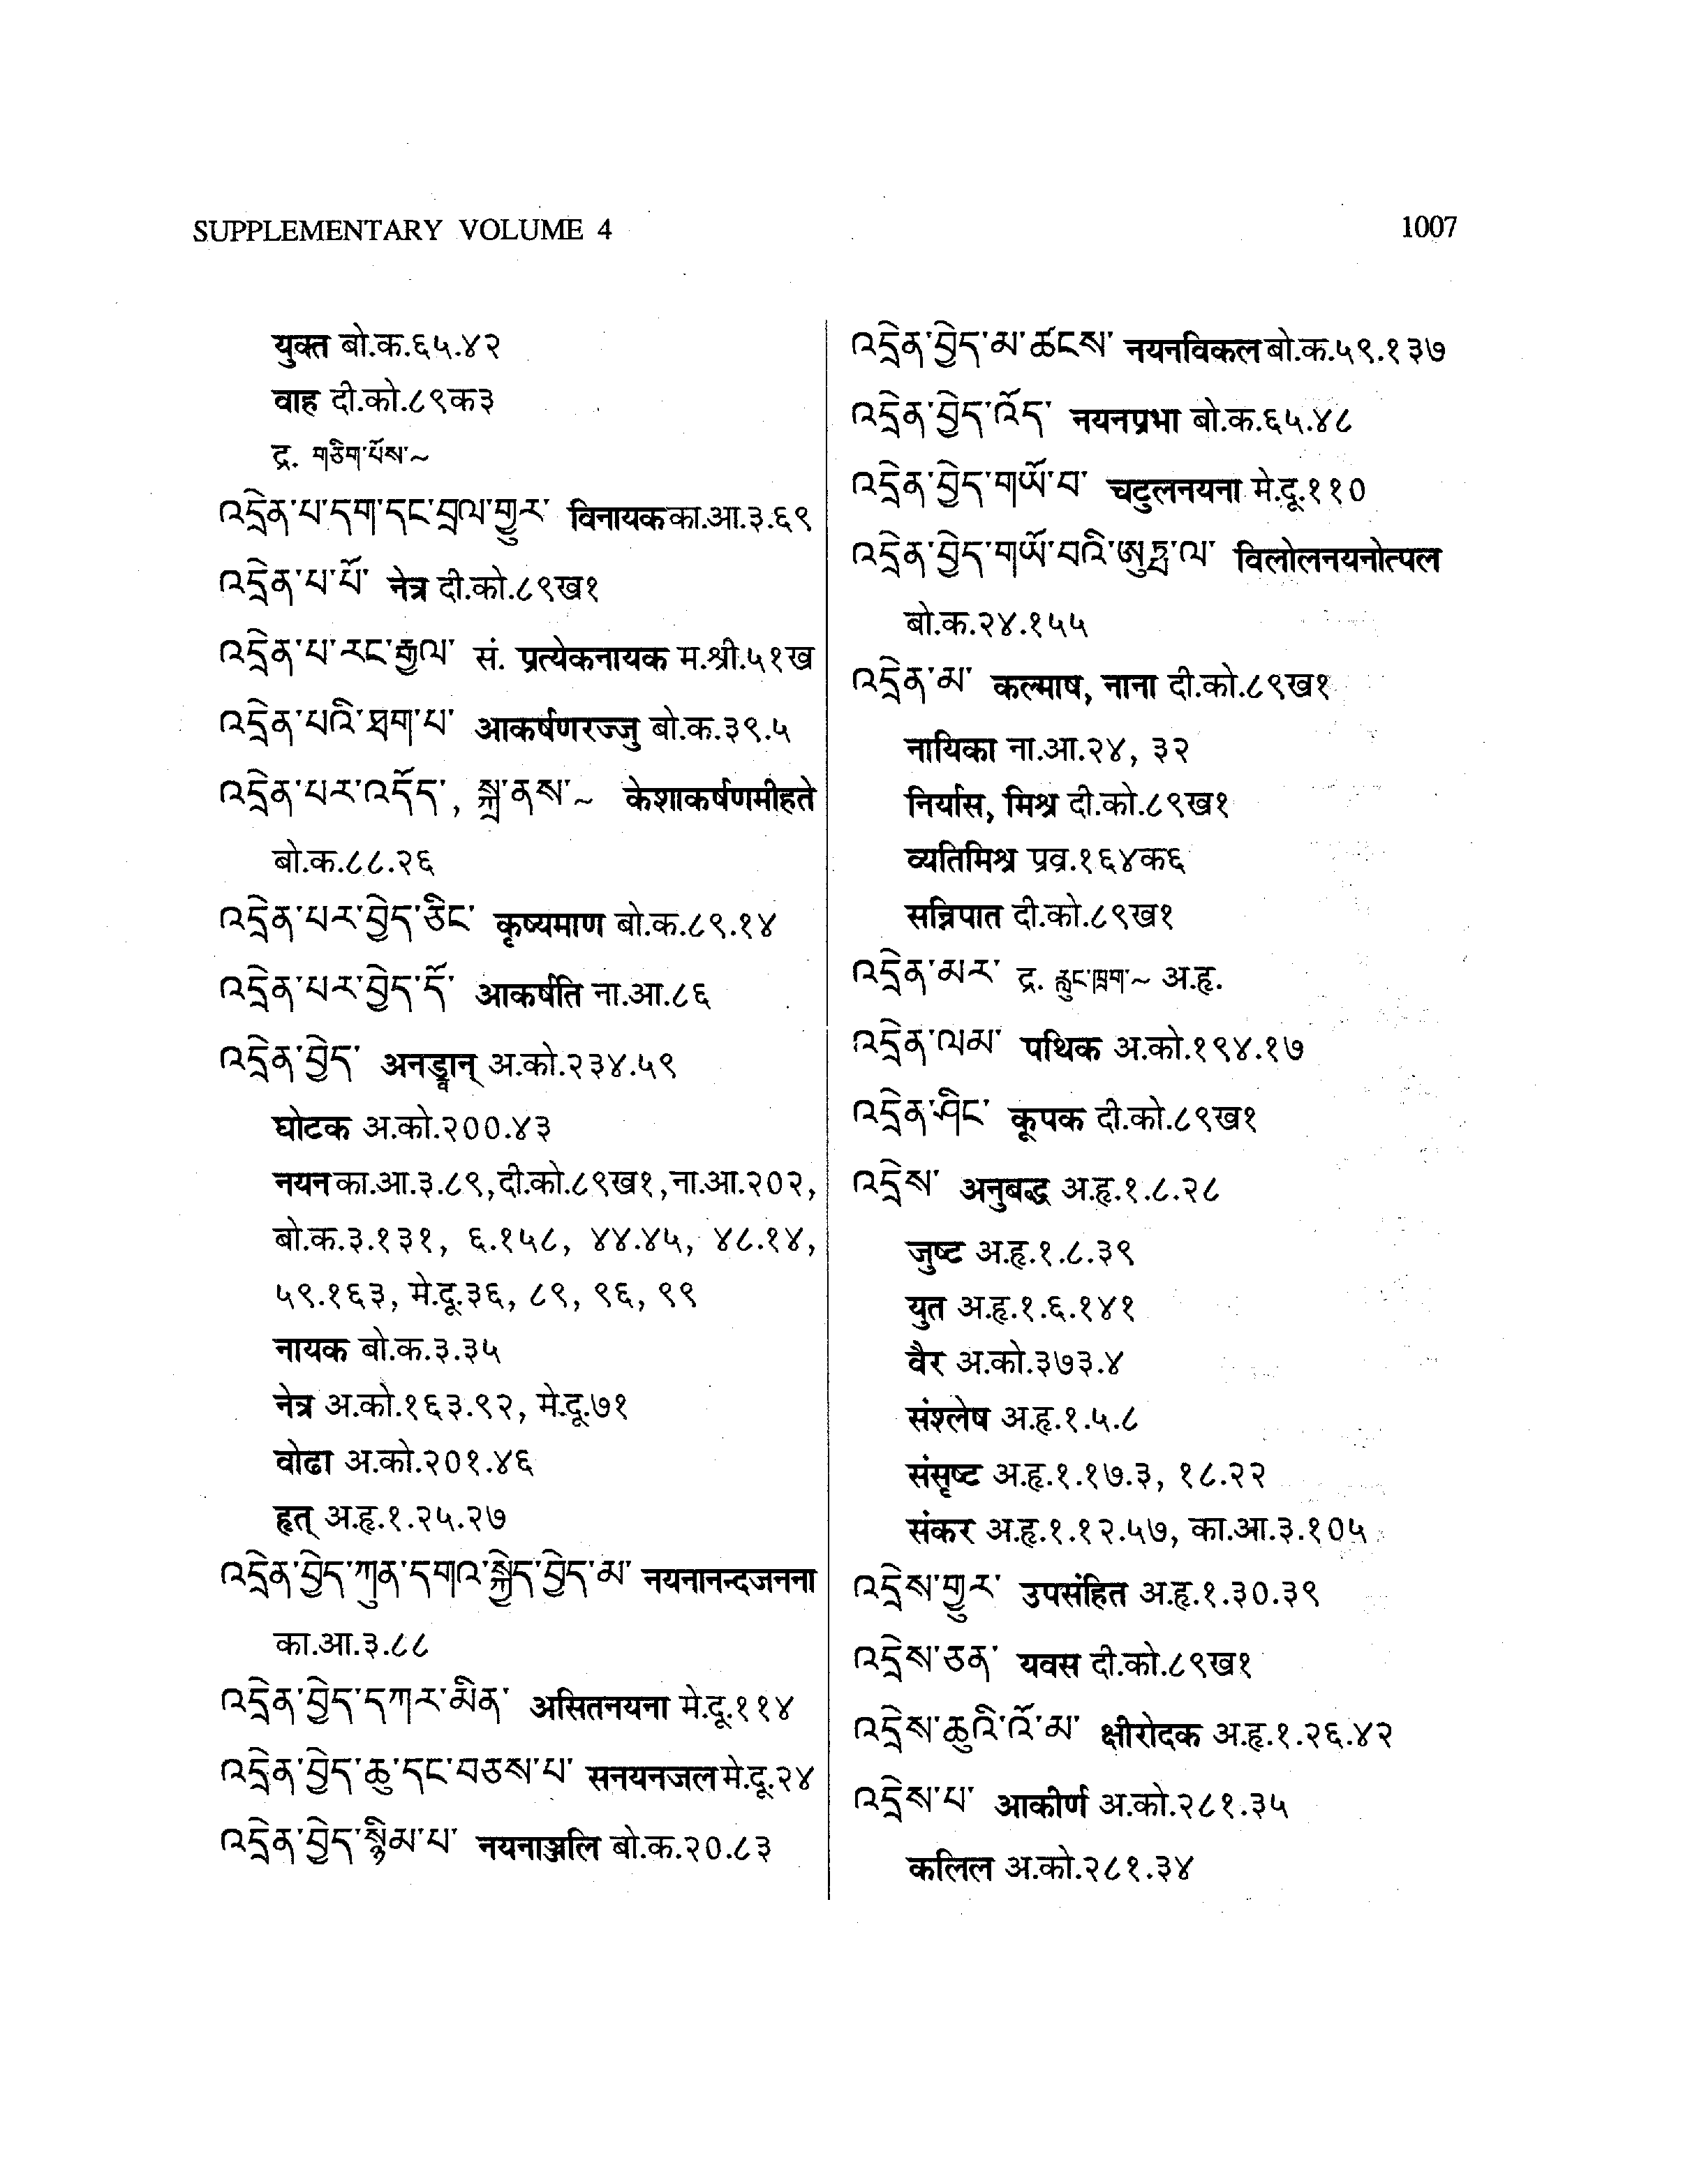 SUPPLEMENTARY VOLUME 4
1007
युक्त बो.क.६५.४२
वाह दी.को.८९क३
द्र. གཅིག་པོས་~
འདྲེན་པ་དག་དང་བྲལ་གྱུར་ विनायक का.आ.३.६९
འདྲེན་པ་པོ་ नेत्र दी.को.८९ख१
འདྲེན་པ་རང་རྒྱལ་ सं. प्रत्येकनायक म.श्री.५१ख
འདྲེན་པའི་ཐག་པ་ आकर्षणरज्जु बो.क.३९.५
འདྲེན་པར་འདོད་, སྐྲ་ནས་~ केशाकर्षणमीहते
बो.क.८८.२६
འདྲེན་པར་བྱེད་ཅིང་ कृष्यमाण बो.क.८९.१४
འདྲེན་པར་བྱེད་དོ་ आकर्षति ना.आ.८६
འདྲེན་བྱེད་ अनड्वान् अ.को.२३४.५९
घोटक अ.को.२००.४३
नयन का.आ.३.८९, दी.को.८९ख१, ना.आ.२०२,
बो.क.३.१३१, ६.१५८, ४४.४५, ४८.१४,
५९.१६३, मे.दू.३६, ८९, ९६, ९९
नायक बो.क.३.३५
नेत्र अ.को.१६३.९२, मे.दू.७१
वोढा अ.को.२०१.४६
हृत् अ.हृ.१.२५.२७
འདྲེན་བྱེད་ཀུན་དགའ་སྐྱེད་བྱེད་མ་ नयनानन्दजनना
का.आ.३.८८
འདྲེན་བྱེད་དཀར་མིན་ असितनयना मे.दू.११४
འདྲེན་བྱེད་ཆུ་དང་བཅས་པ་ सनयनजल मे.दू.२४
འདྲེན་བྱེད་སྙིམ་པ་ नयनाञ्जलि बो.क.२०.८३
འདྲེན་བྱེད་མ་ཚངས་ नयनविकल बो.क.५९.१३७
འདྲེན་བྱེད་འོད་ नयनप्रभा बो.क.६५.४८
འདྲེན་བྱེད་གཡོ་བ་ चटुलनयना मे.दू.११०
འདྲེན་བྱེད་གཡོ་བའི་ཨུཏྤ་ལ་ विलोलनयनोत्पल
बो.क.२४.१५५
འདྲེན་མ་ कल्माष, नाना दी.को.८९ख१
नायिका ना.आ.२४, ३२
निर्यास, मिश्र दी.को.८९ख१
व्यतिमिश्र प्रव्र.१६४क६
सन्निपात दी.को.८९ख१
འདྲེན་མར་ द्र. རླུང་ཁྲག་~ अ.हृ.
འདྲེན་ལམ་ पथिक अ.को.१९४.१७
འདྲེན་ཤིང་ कूपक दी.को.८९ख१
འདྲེས་ अनुबद्ध अ.हृ.१.८.२८
जुष्ट अ.हृ.१.८.३९
युत अ.हृ.१.६.१४१
वैर अ.को.३७३.४
संश्लेष अ.हृ.१.५.८
संसृष्ट अ.हृ.१.१७.३, १८.२२
संकर अ.हृ.१.१२.५७, का.आ.३.१०५
འདྲེས་གྱུར་ उपसंहित अ.हृ.१.३०.३९
འདྲེས་ཅན་ यवस दी.को.८९ख१
འདྲེས་ཆུའི་འོ་མ་ क्षीरोदक अ.हृ.१.२६.४२
འདྲེས་པ་ आकीर्ण अ.को.२८१.३५
कलिल अ.को.२८१.३४